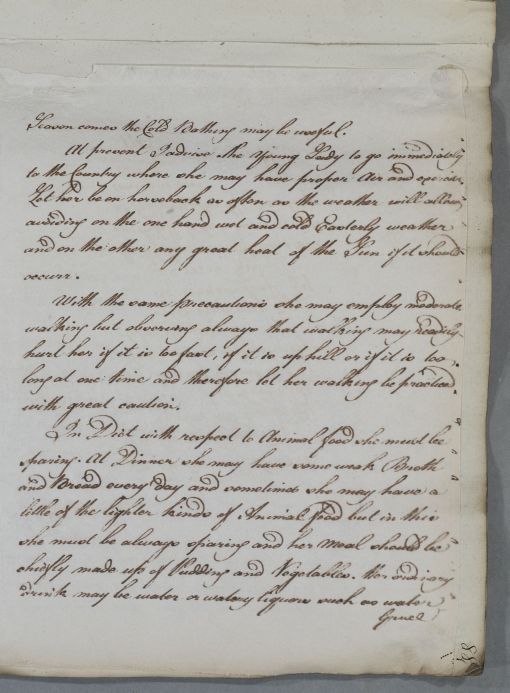 Season comes the Cold Bathing may be useful.
At present I advise the Young Lady to go immediately
to the Country where she may have proper Air and exercise
Let her be on horseback as often as the weather will allow
avoiding on the one hand wet and cold Easterly weather
and on the other any great heat of the Sun if it should
occurr.
With the same precautions she may employ moderate
walking but observing always that walking may readily
hurt her if it is too fast, if it is up hill or if it is too
long at one time and therefore let her walking be practised
with great caution.
In Diet with respect to Animal food she must be
sparing. At Dinner she may have some weak Broth
and Bread every day and sometimes she may have a
little of the lighter kinds of Animal food but in this
she must be always sparing and her meal should be
chiefly made up of Pudding and Vegetables. Her ordinary
drink may be water or watery liquors such as water
Gruel